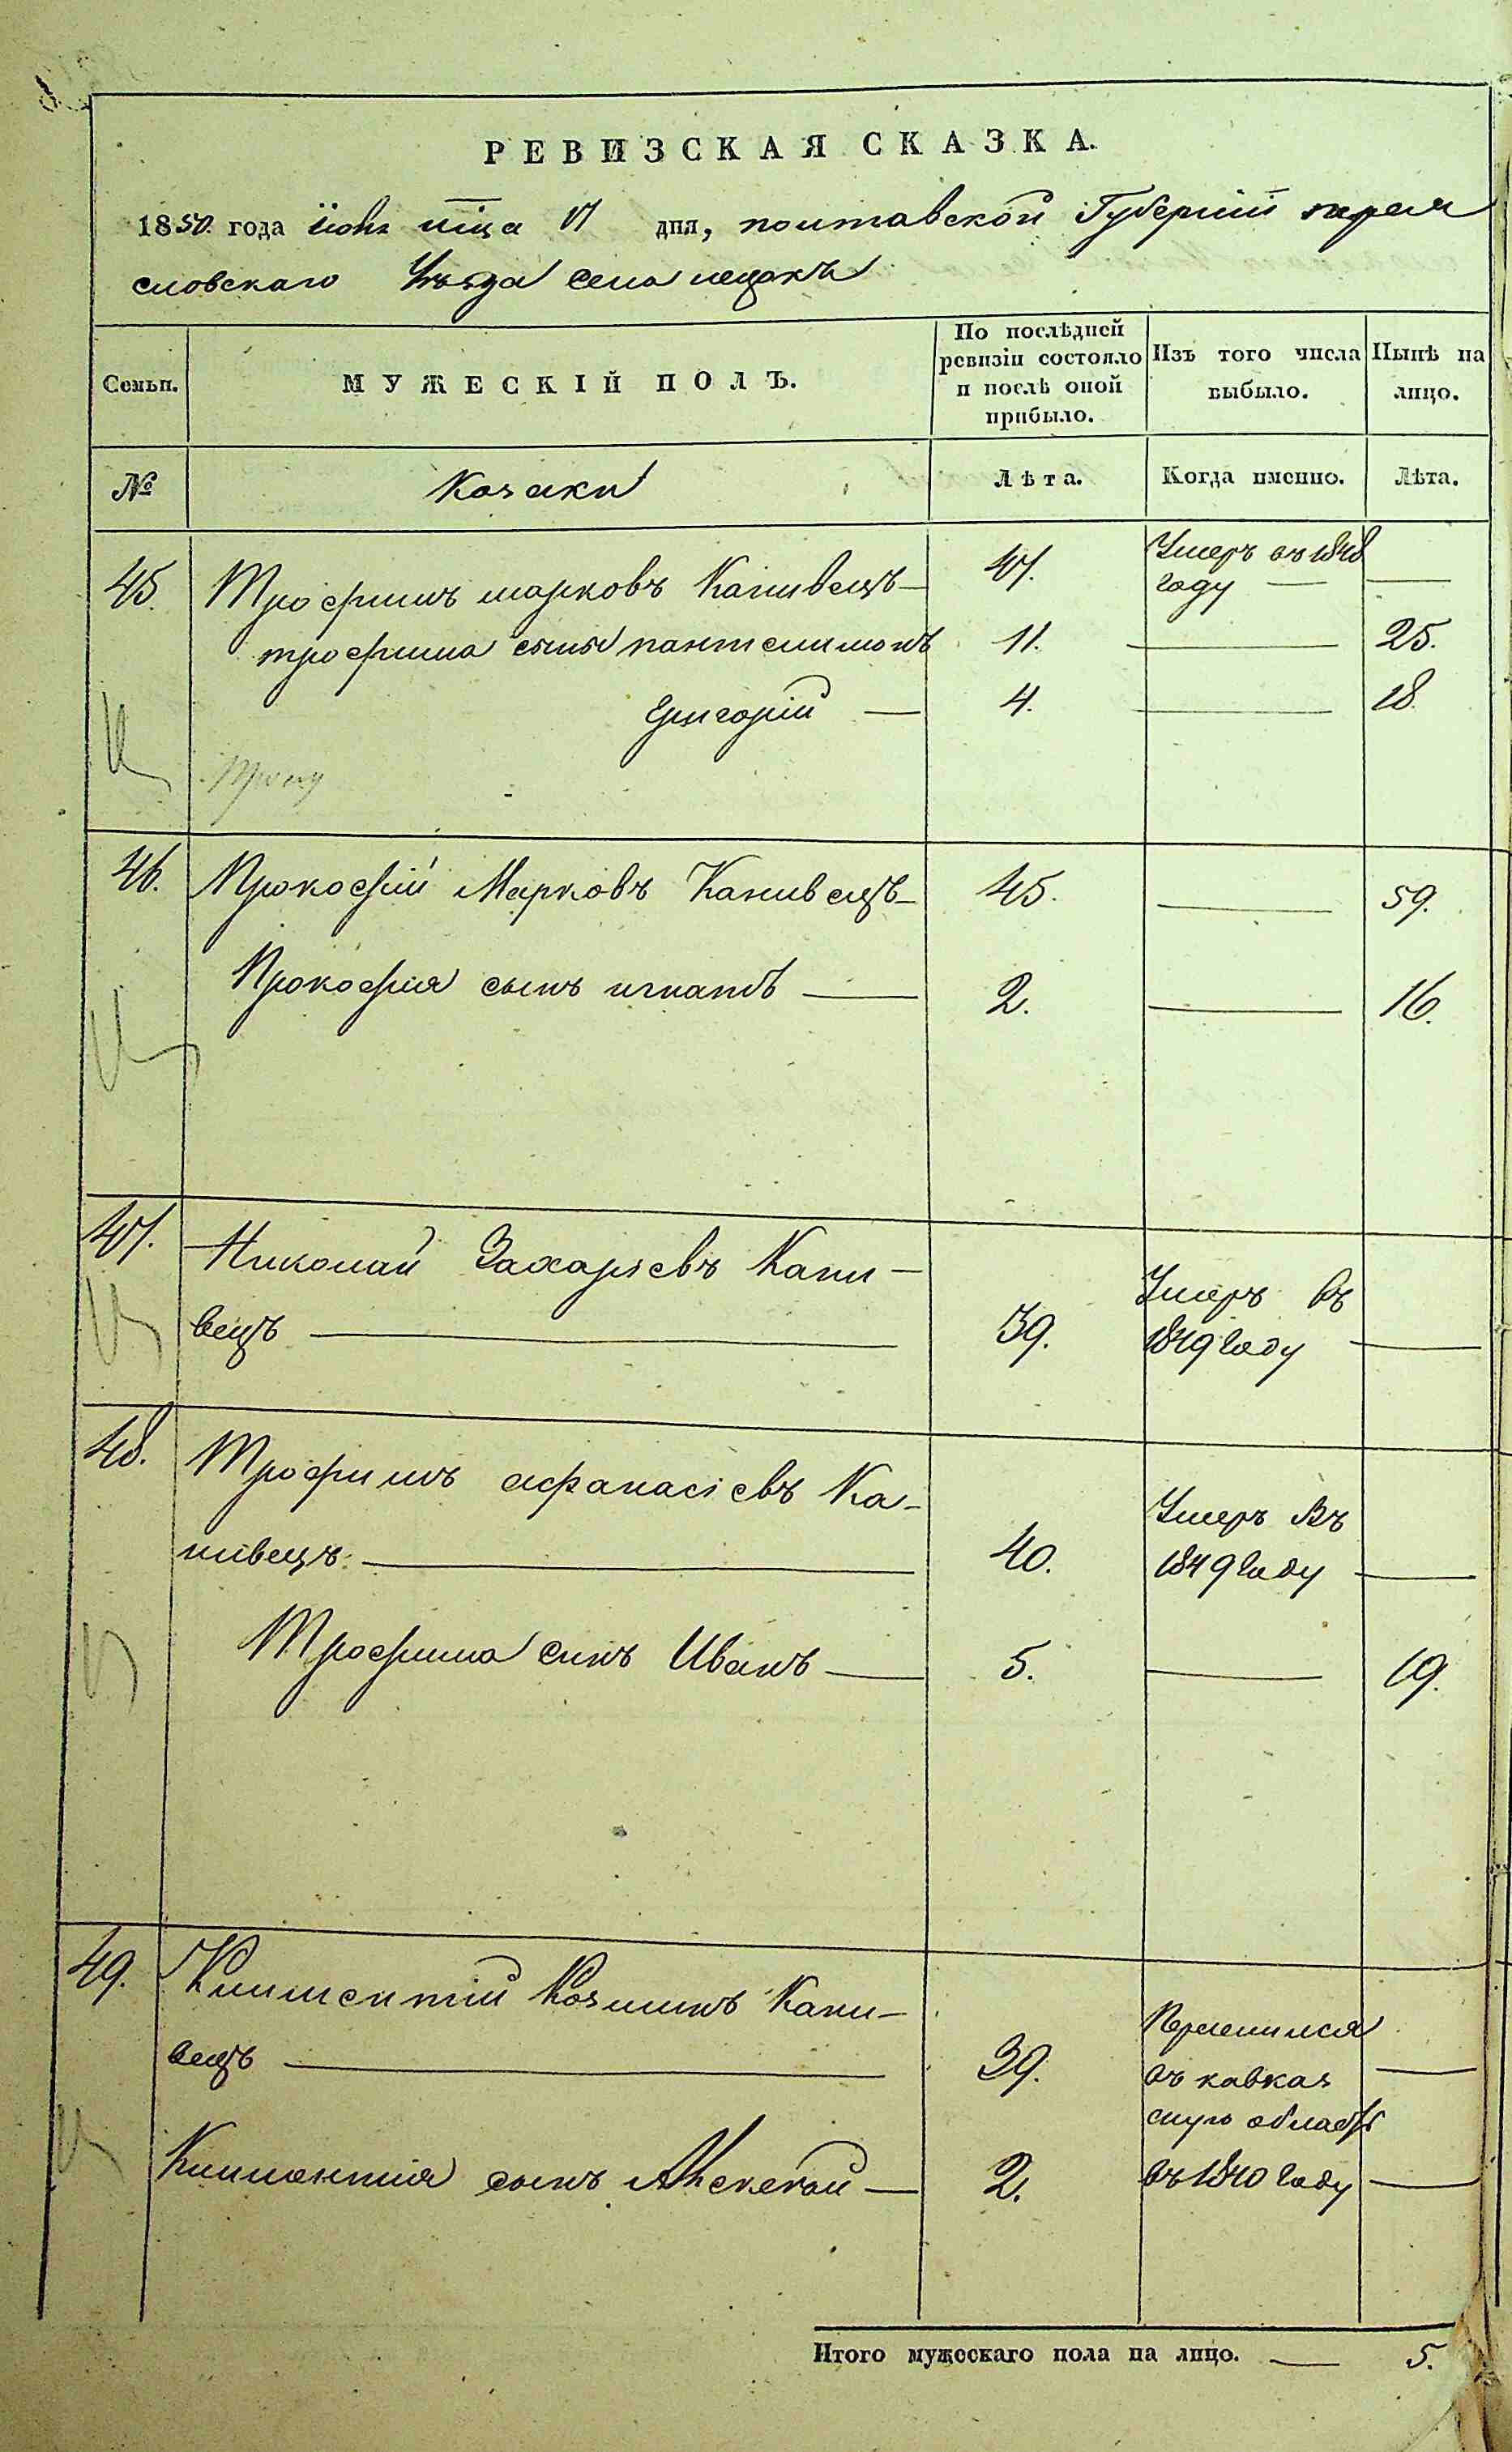 РЕВИЗСКАЯ СКАЗКА.
1850 года Іюня мѣца 17 дня, полтавской Губерніи перея
словскаго Уѣзда села лецокъ
Семьи.
МУЖЕСКІЙ ПОЛЪ.
По послѣдней
ревизіи состояло
и послѣ оной
прибыло.
Изъ того числа
выбыло.
Нынѣ на
лицо.
№ Козаки Лѣта. Когда именно. Лѣта.
45. Трофимъ марковъ Канивецъ— 47. Умеръ въ 1848
году — —
трофима сыны пантелимонъ 11. — 25.
Григорій — 4. — 18.
46. Прокофій Марковъ Канивецъ— 45. — 59.
Прокофія сынъ игнатъ — 2. — 16.
47. Николай Захаріевъ Кани— Умеръ въ
вецъ — 39. 1849 году —
48. Трофимъ афанасіевъ Ка— Умеръ Въ
нивецъ. — 40. 1849 году —
Трофима синъ Иванъ — 5. — 19.
49. Климентій Козминъ Кани—
вецъ — 39. Переселился
въ кавказ
скую область
въ 1840 году —
Климентія сынъ Алексѣй — 2. —
Итого мужескаго пола на лицо. — 5.